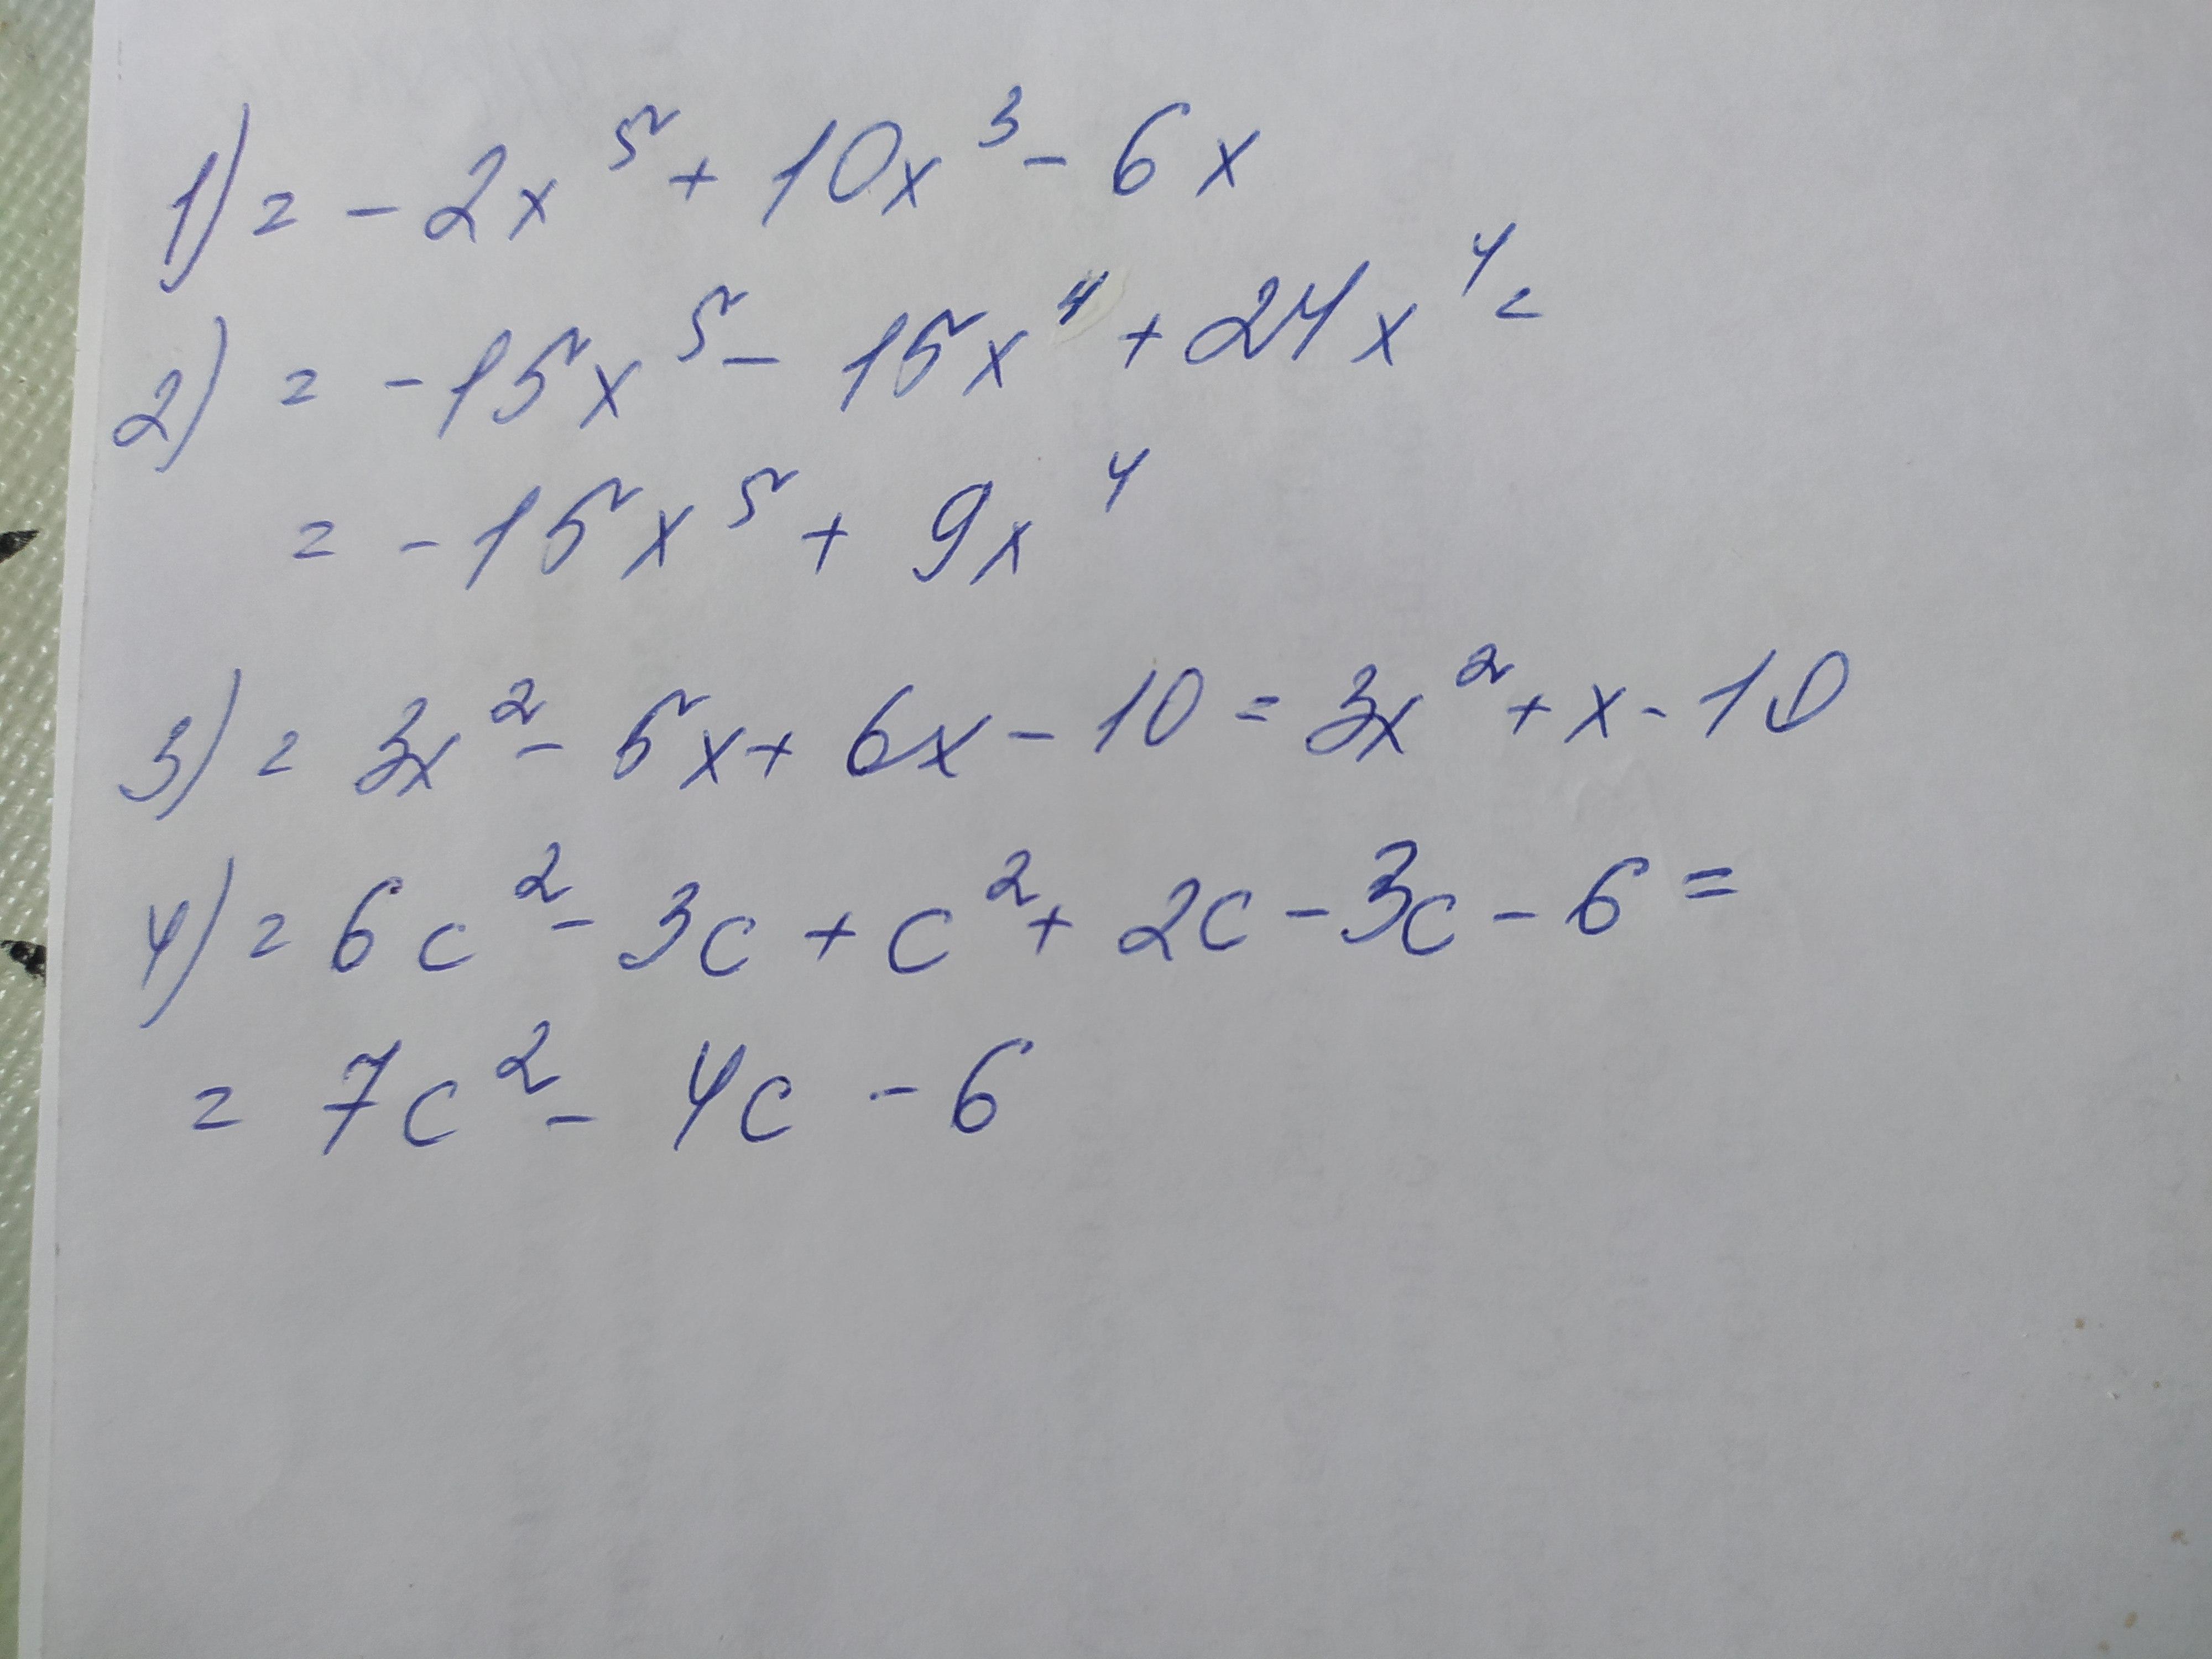 1) = - 2x⁵ + 10x³ - 6x
2) = - 15x⁵ - 15x⁴ + 24x⁴ =
= - 15x⁵ + 9x⁴
3) = 3x² - 5x + 6x - 10 = 3x² + x - 10
4) = 6c² - 3c + c² + 2c - 3c - 6 =
= 7c² - 4c - 6